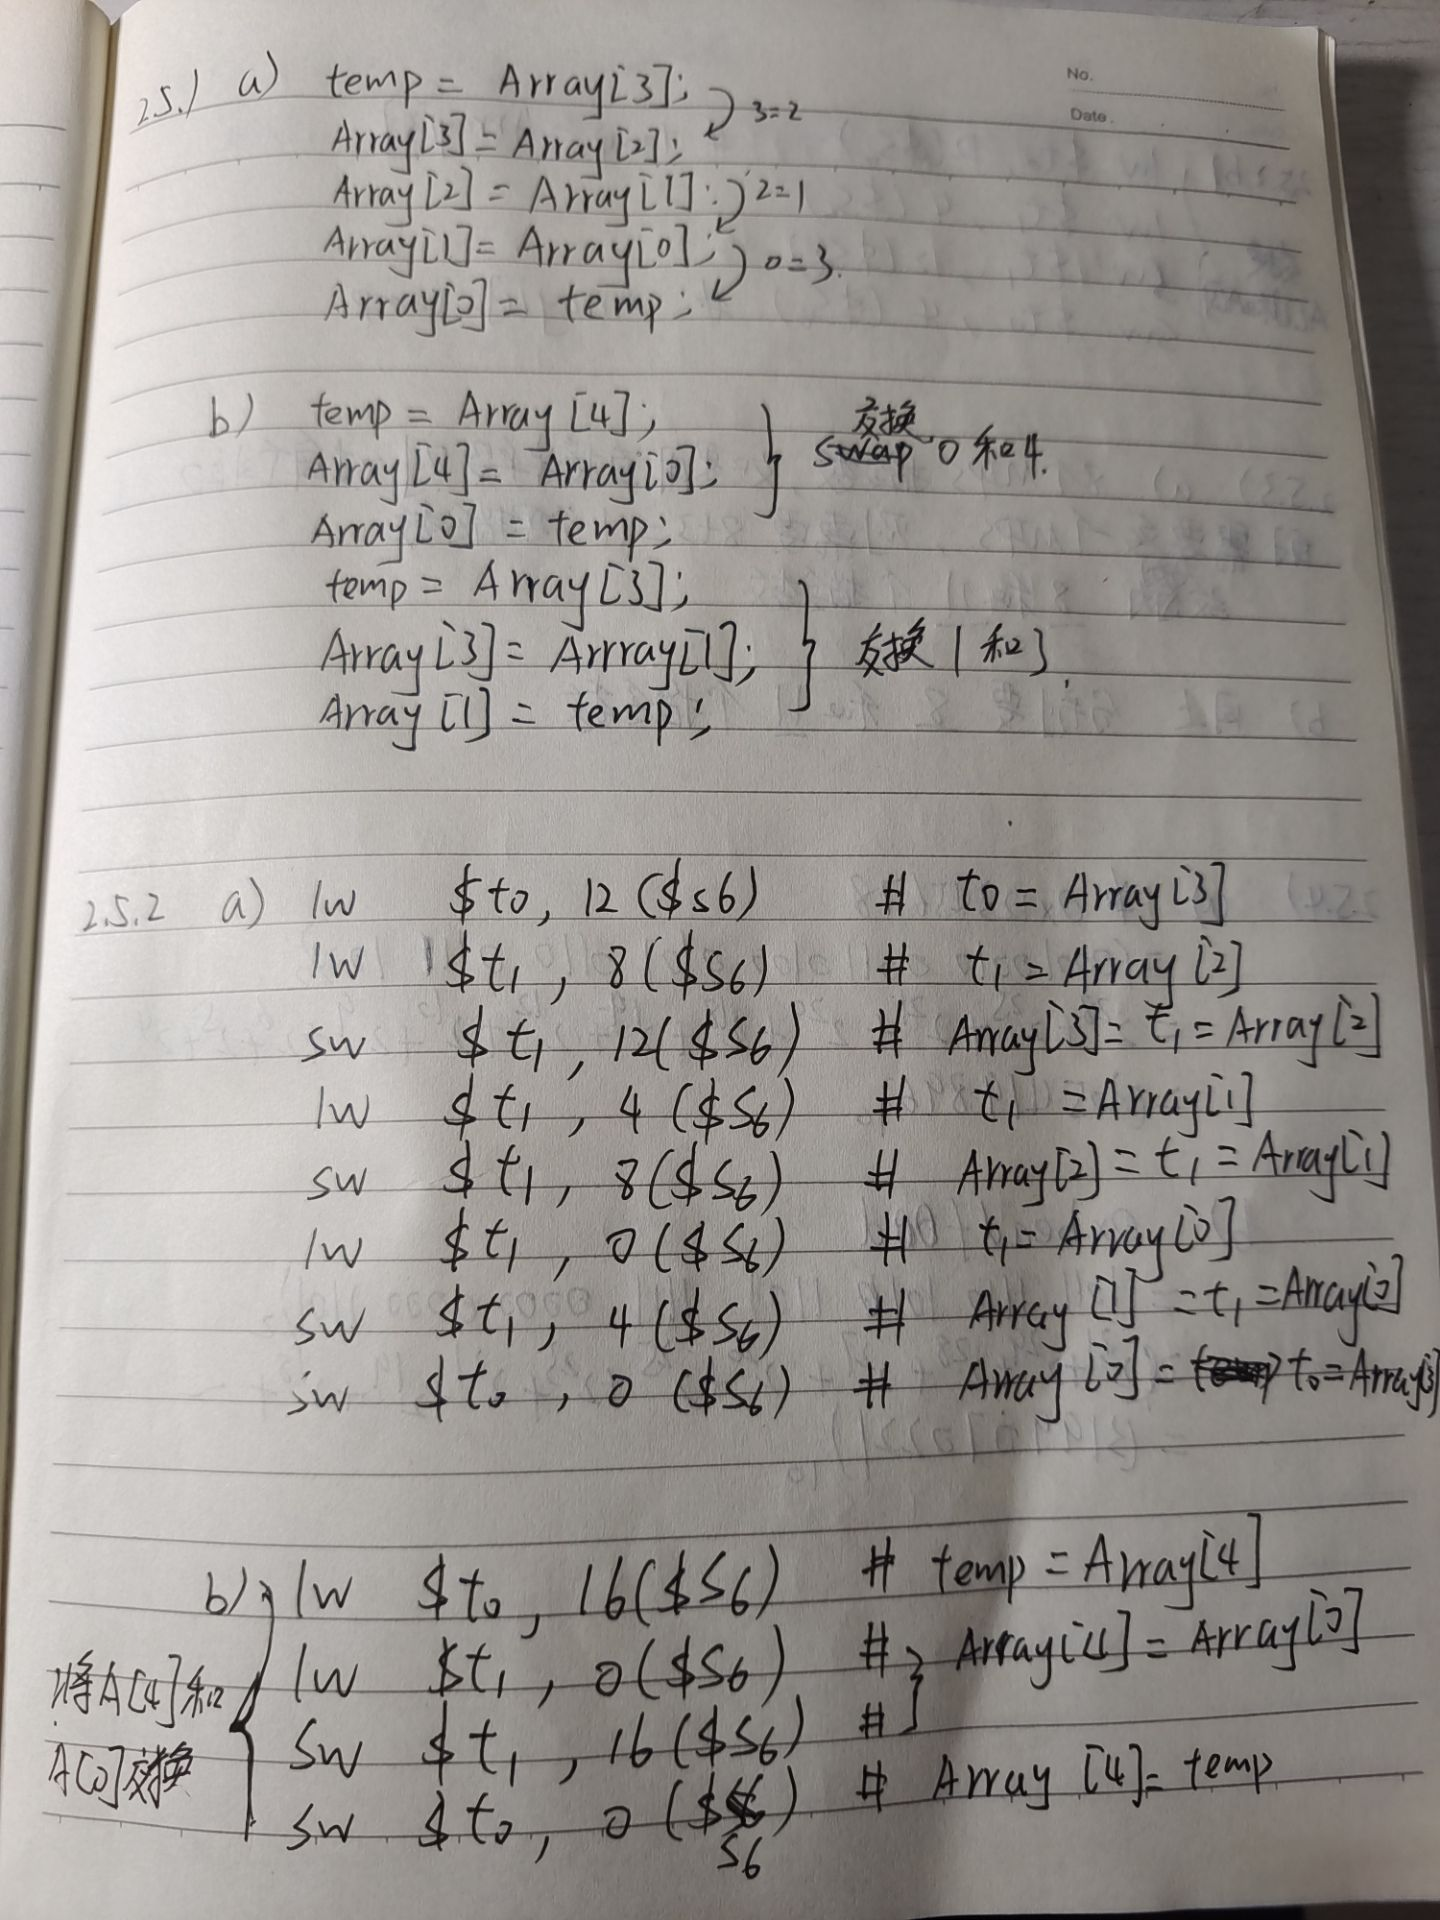 No.
Date.
2.5.1 a) temp = Array[3];
Array[3] = Array[2]; 3=2
Array[2] = Array[1]; 2=1
Array[1] = Array[0]; 0=3.
Array[0] = temp;
b) temp = Array[4];
Array[4] = Array[0]; 交换 swap 0和4.
Array[0] = temp;
temp = Array[3];
Array[3] = Arrray[1]; 交换1和3.
Array[1] = temp;
2.5.2 a) lw $t0, 12($s6) # t0 = Array[3]
lw $t1, 8($s6) # t1 = Array[2]
sw $t1, 12($s6) # Array[3] = t1 = Array[2]
lw $t1, 4($s6) # t1 = Array[1]
sw $t1, 8($s6) # Array[2] = t1 = Array[1]
lw $t1, 0($s6) # t1 = Array[0]
sw $t1, 4($s6) # Array[1] = t1 = Array[0]
sw $t0, 0($s6) # Array[0] = t0 = Array[3]
b) lw $t0, 16($s6) # temp = Array[4]
将A[4]和 lw $t1, 0($s6) # Array[4] = Array[0]
A[0]交换 sw $t1, 16($s6) #
sw $t0, 0($s6) # Array[4] = temp